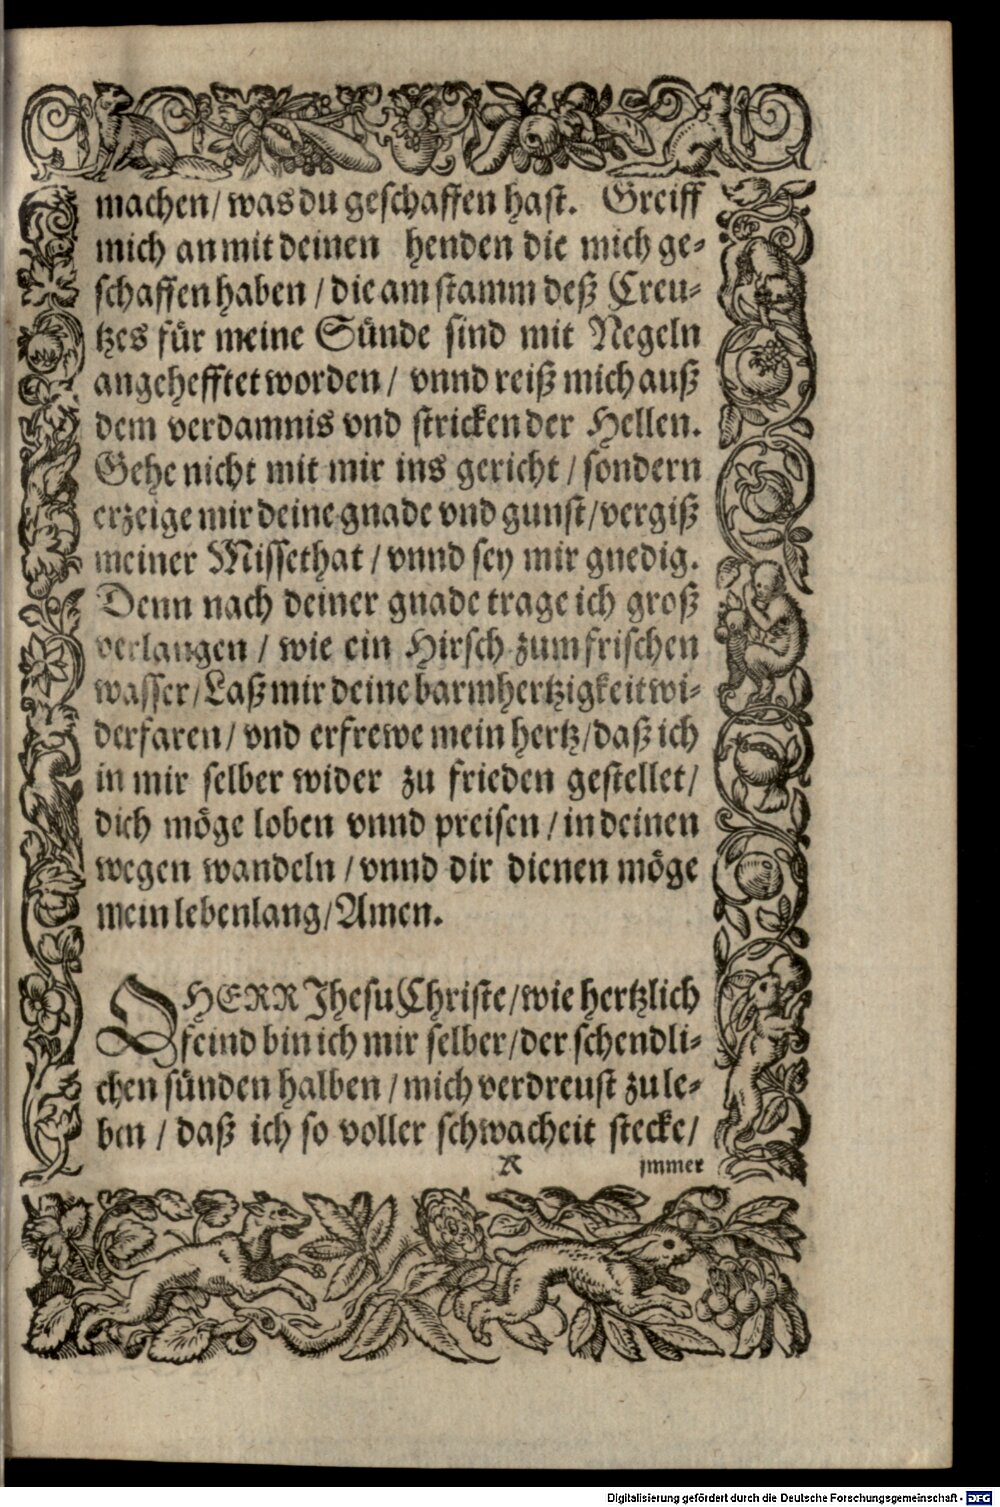 machen/ was du geschaffen hast. Greiff
mich an mit deinen henden die mich ge-
schaffen haben / die am stamm deß Creu-
tzes für meine Sünde sind mit Negeln
angehefftet worden/ vnnd reiß mich auß
dem verdamnis vnd stricken der Hellen.
Gehe nicht mit mir ins gericht / sondern
erzeige mir deine gnade vnd gunst/vergiß
meiner Missethat / vnnd sey mir gnedig.
Denn nach deiner gnade trage ich groß
verlangen / wie ein Hirsch zum frischen
wasser/Laß mir deine barmhertzigkeit wi-
derfaren/ vnd erfrewe mein hertz/daß ich
in mir selber wider zu frieden gestellet/
dich möge loben vnnd preisen / in deinen
wegen wandeln / vnnd dir dienen möge
mein lebenlang/Amen.
O HERR Jhesu Christe/wie hertzlich
feind bin ich mir selber/der schendli-
chen sünden halben /mich verdreust zu le-
ben / daß ich so voller schwacheit stecke/
A immer
Digitalisierung gefördert durch die Deutsche Forschungsgemeinschaft - DFG